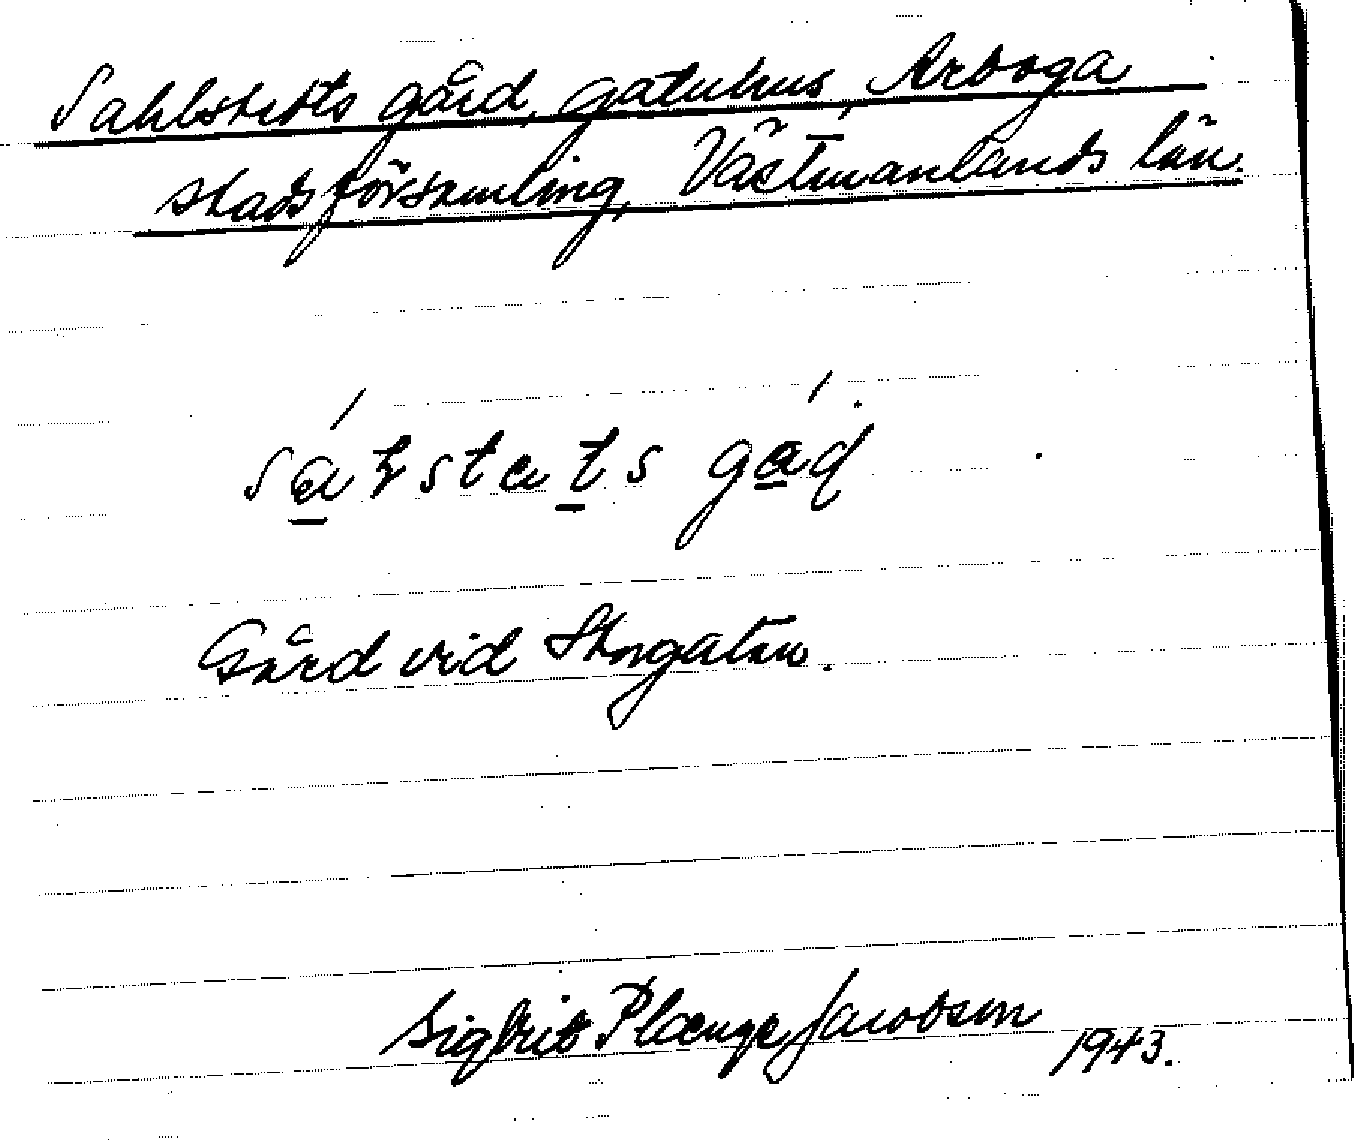 Sahlstedts gård, gatuhus, Arboga
stadsförsamling, Västmanlands län.
Gård vid Storgatan.
Sigfrid Plænge Jacobson
1943.